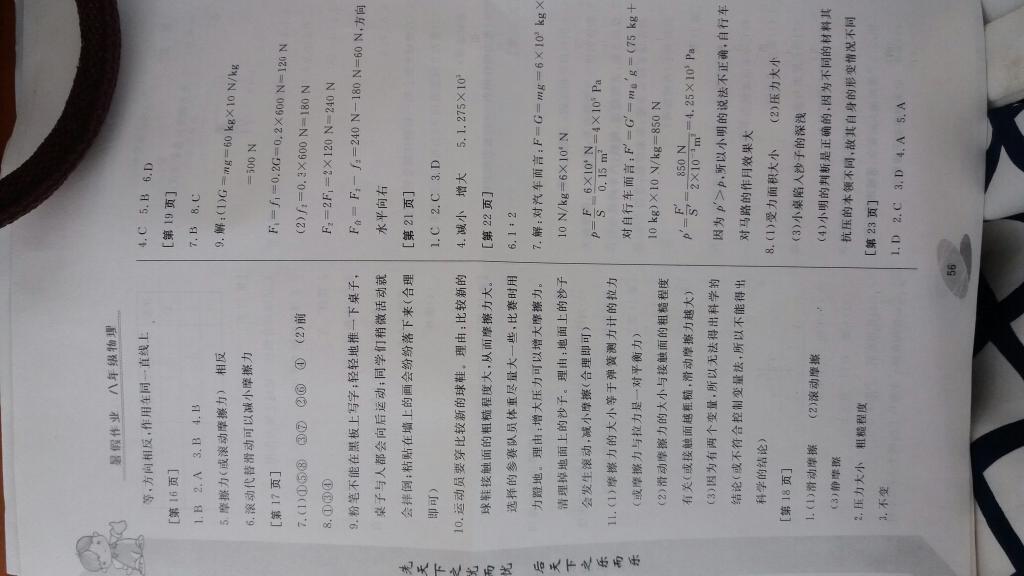 暑假作业 八年级物理
等,方向相反,作用在同一直线上
[第16页]
1.B 2.A 3.B 4.B
5.摩擦力(或滚动摩擦力) 相反
6.滚动代替滑动可以减小摩擦力
[第17页]
7.(1)①⑤⑧ ③⑦ ②⑥ ④ (2)前
8.①③④
9.粉笔不能在黑板上写字;轻轻地推一下桌子,
桌子与人都会向后运动;同学们稍微活动就
会摔倒;粘贴在墙上的画会纷纷落下来(合理
即可)
10.运动员要穿比较新的球鞋。理由:比较新的
球鞋接触面的粗糙程度大,从而摩擦力大。
选择的参赛队员体重尽量大一些,比赛时用
力蹬地。理由:增大压力可以增大摩擦力。
清理掉地面上的沙子。理由:地面上的沙子
会发生滚动,减小摩擦(合理即可)
11.(1)摩擦力的大小等于弹簧测力计的拉力
(或摩擦力与拉力是一对平衡力)
(2)滑动摩擦力的大小与接触面的粗糙程度
有关(或接触面越粗糙,滑动摩擦力越大)
(3)因为有两个变量,所以无法得出科学的
结论(或不符合控制变量法,所以不能得出
科学的结论)
[第18页]
1.(1)滑动摩擦 (2)滚动摩擦
(3)静摩擦
2.压力大小 粗糙程度
3.不变
4.C 5.B 6.D
[第19页]
7.B 8.C
9.解:(1)G=mg=60 kg×10 N/kg
=600 N
F₁=f₁=0.2G=0.2×600 N=120 N
(2)f₂=0.3×600 N=180 N
F₂=2F₁=2×120 N=240 N
F合=F₂-f₂=240 N-180 N=60 N,方向
水平向右
[第21页]
1.C 2.C 3.D
4.减小 增大 5.1.275×10⁵
[第22页]
6.1:2
7.解:对汽车而言:F=G=mg=6×10³ kg×
10 N/kg=6×10⁴ N
p=F/S=6×10⁴ N/0.15 m²=4×10⁵ Pa
对自行车而言:F′=G′=m总′g=(75 kg+
10 kg)×10 N/kg=850 N
p′=F′/S′=850 N/2×10⁻³ m²=4.25×10⁵ Pa
因为p′>p,所以小明的说法不正确,自行车
对马路的作用效果大
8.(1)受力面积大小 (2)压力大小
(3)小桌陷入沙子的深浅
(4)小明的判断是正确的,因为不同的材料其
抗压的本领不同,故其自身的形变情况不同
[第23页]
1.D 2.C 3.D 4.A 5.A
先天下之忧而忧 后天下之乐而乐
56